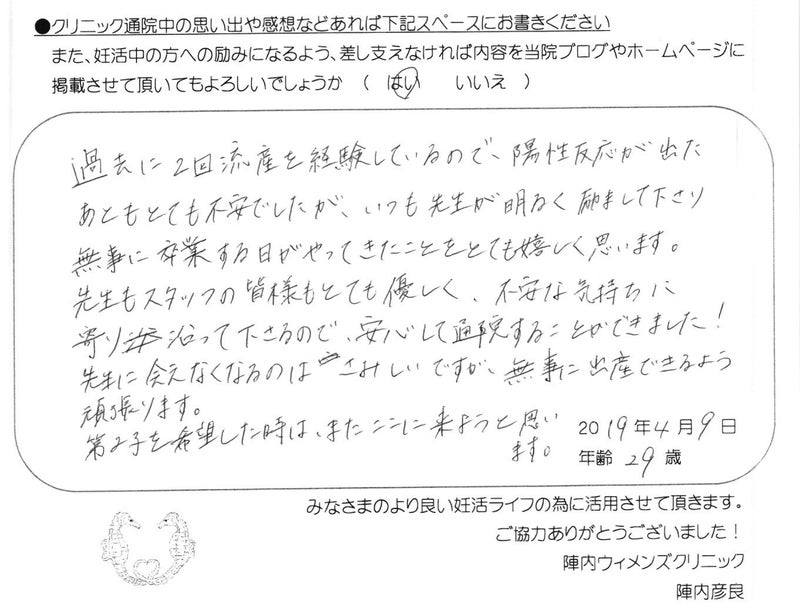 ●クリニック通院中の思い出や感想などあれば下記スペースにお書きください
また、妊活中の方への励みになるよう、差し支えなければ内容を当院ブログやホームページに
掲載させて頂いてもよろしいでしょうか （ はい いいえ ）
過去に2回流産を経験しているので、陽性反応が出た
あともとても不安でしたが、いつも先生が明るく励まして下さり
無事に卒業する日がやってきたことをとても嬉しく思います。
先生もスタッフの皆様もとても優しく、不安な気持ちに
寄り沿って下さるので、安心して通院することができました！
先生に会えなくなるのはさみしいですが、無事に出産できるよう
頑張ります。
第2子を希望した時は、またここに来ようと思い
ます。
2019年4月9日
年齢 29歳
みなさまのより良い妊活ライフの為に活用させて頂きます。
ご協力ありがとうございました！
陣内ウィメンズクリニック
陣内彦良